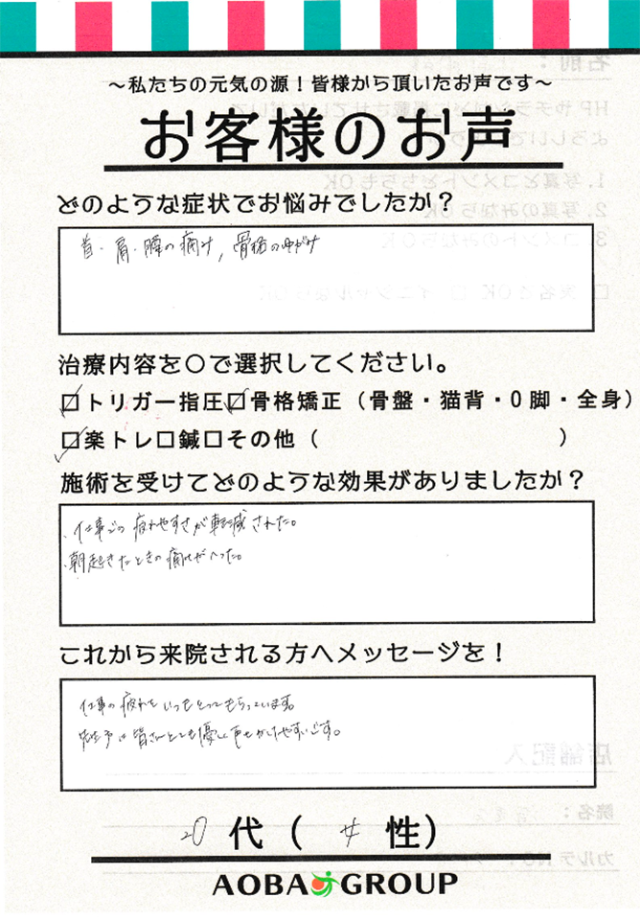 ~私たちの元気の源！皆様から頂いたお声です~
お客様のお声
どのような症状でお悩みでしたか？
首・肩・腰の痛み，骨格のゆがみ
治療内容を〇で選択してください。
☑トリガー指圧☑骨格矯正（骨盤・猫背・O脚・全身）
☑楽トレ□鍼□その他（　　　）
施術を受けてどのような効果がありましたか？
・仕事での疲れやすさが軽減された。
・朝起きたときの痛みがへった。
これから来院される方へメッセージを！
仕事の疲れをいつもとってもらっています。
先生方は皆さんとても優しく声をかけやすいです。
20代（女性）
AOBA GROUP